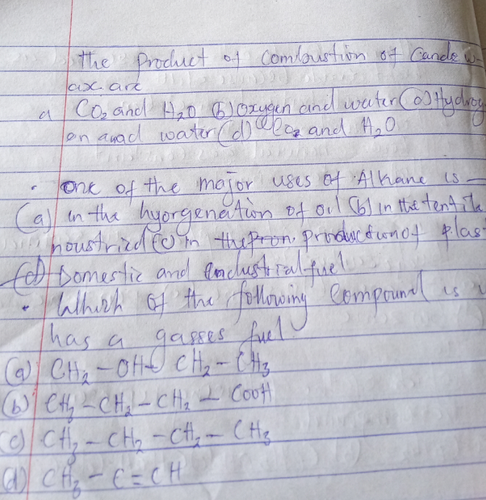 the product of combustion of Candle w
ax are
a CO₂ and H₂O (b) Oxygen and water (c) Hydrog
en and water (d) CO₂ and H₂O
. One of the major uses of Alkane is —
(a) in the hyorgenation of oil (b) in the textile
(c) in production of plas
(d) Domestic and industrial fuel
. Which of the following Compound is u
has a gasses fuel
(a) CH₂ - OH - CH₂ - CH₃
(b) CH₃ - CH₂ - CH₂ - COOH
(c) CH₃ - CH₂ - CH₂ - CH₃
(d) CH₃ - C = CH